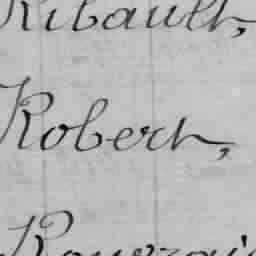 Ribault,
Robert,